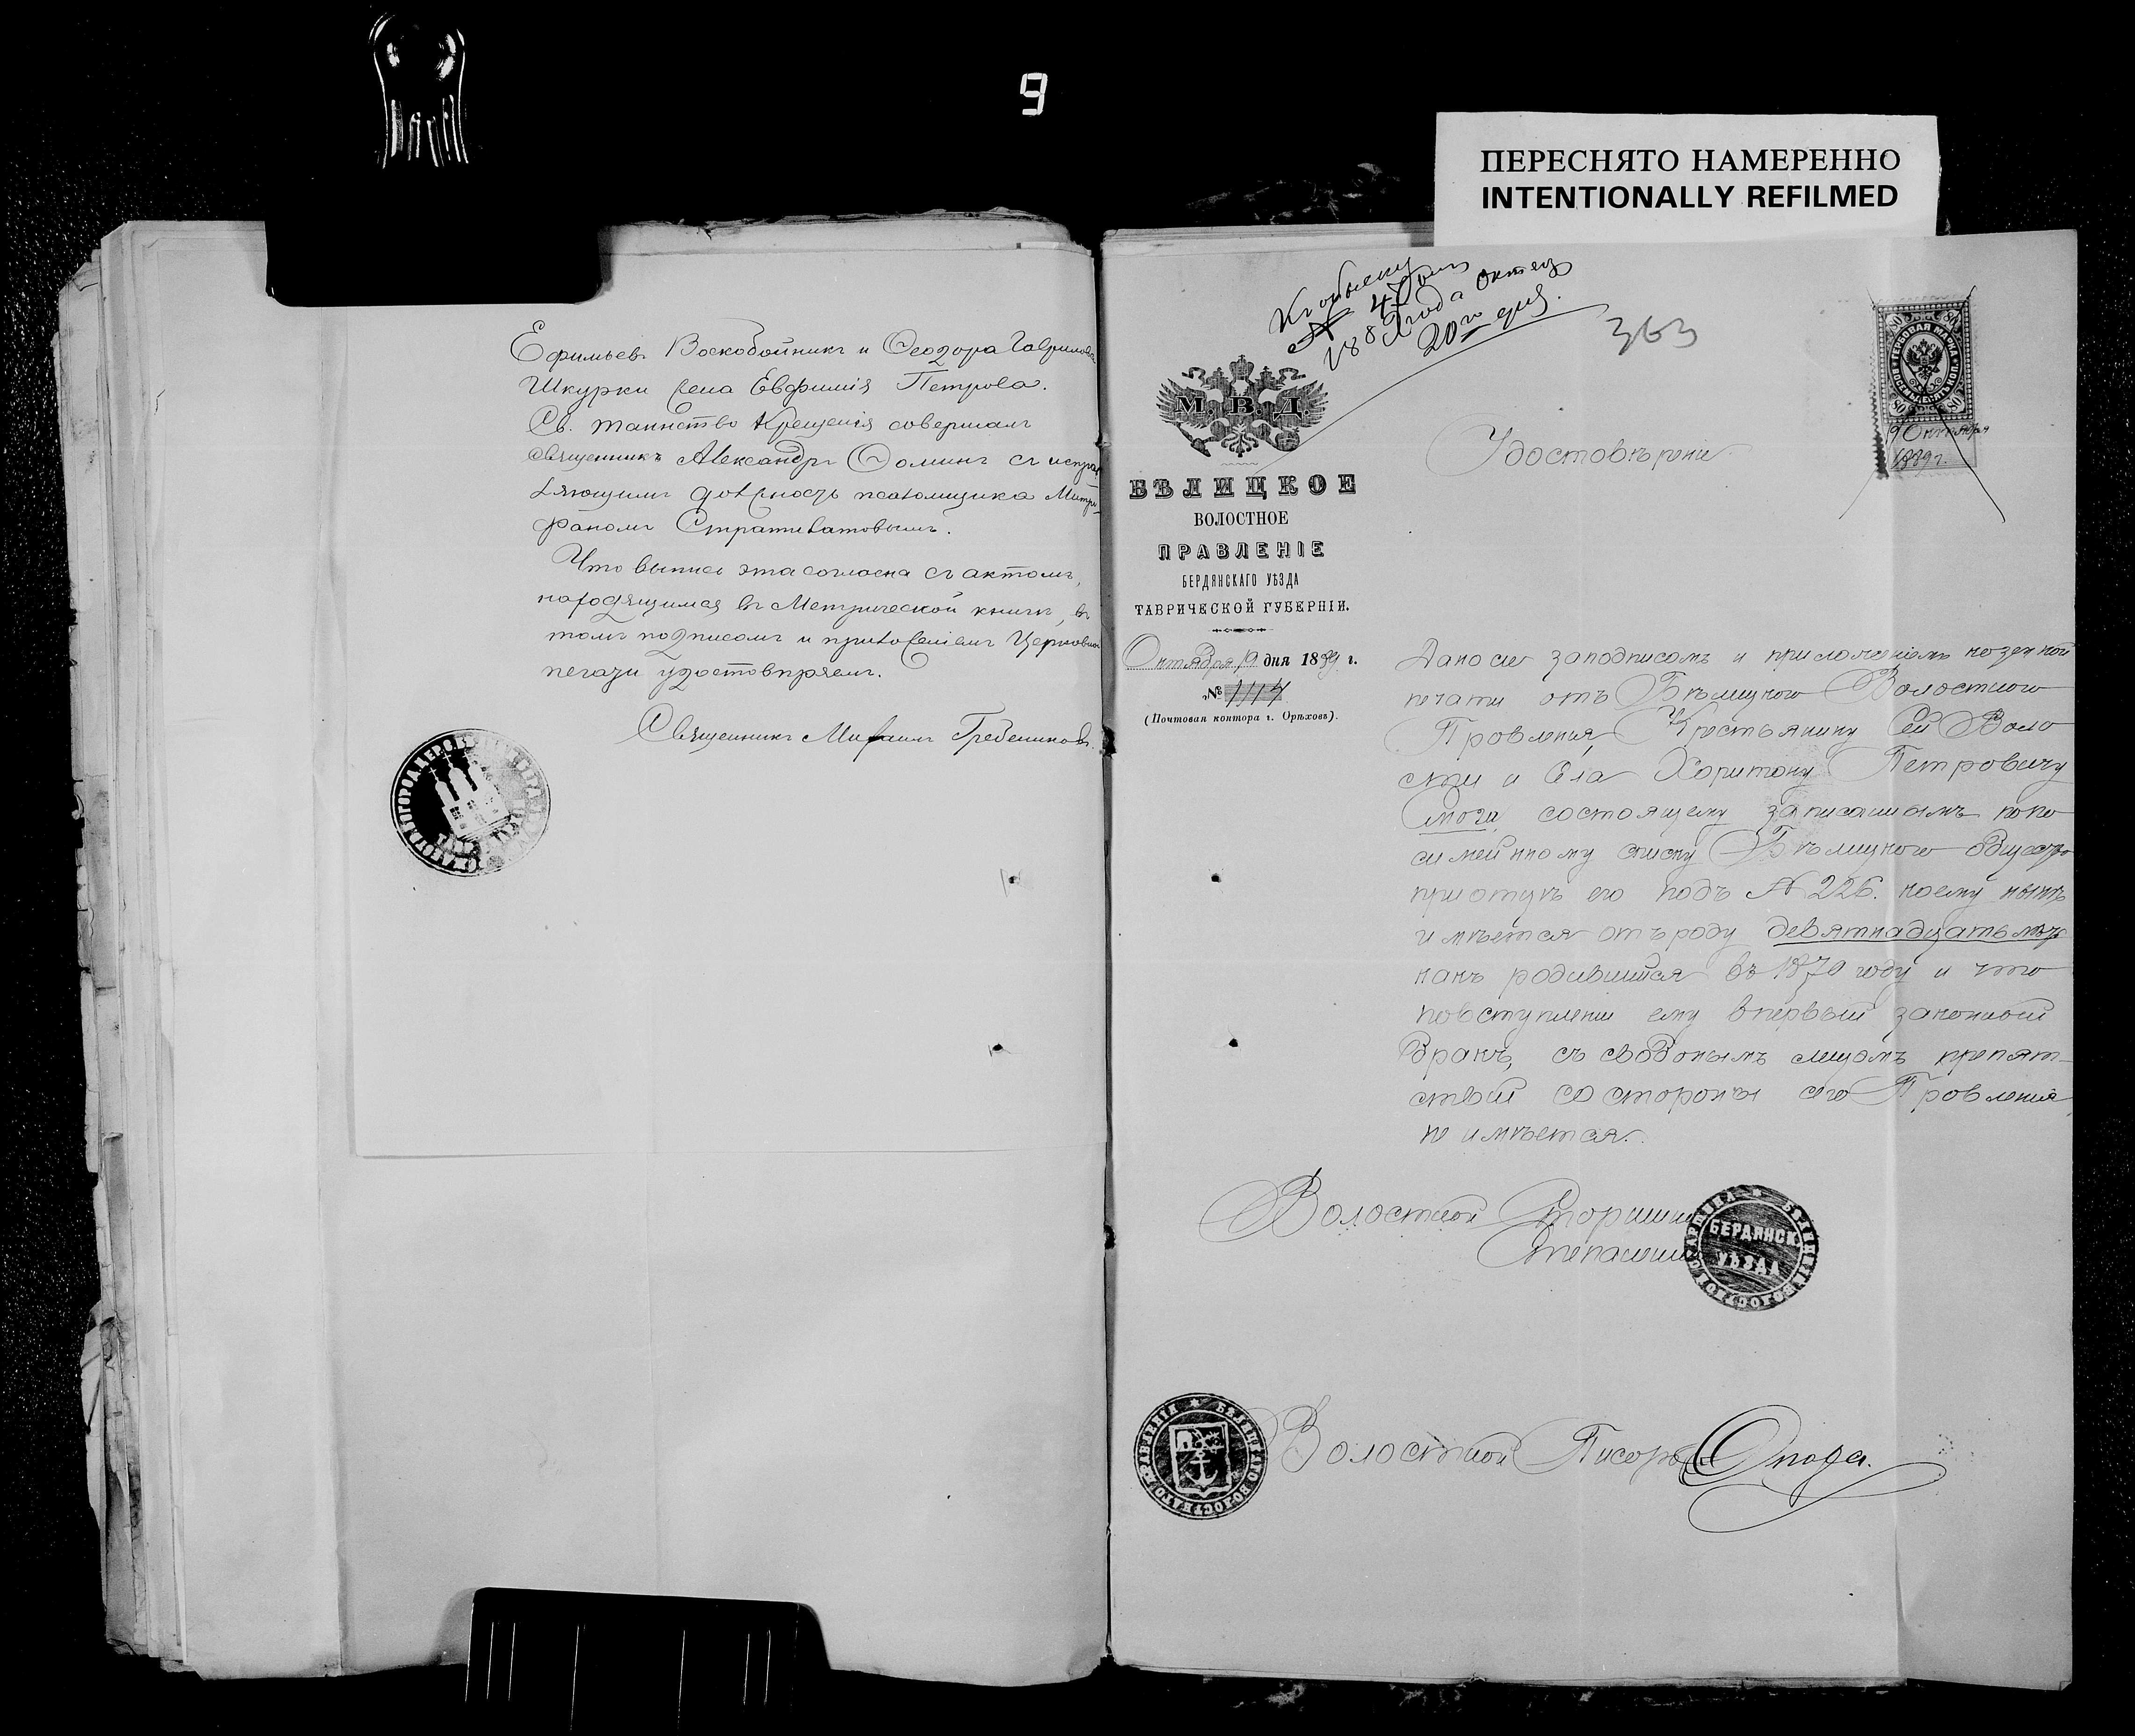 9
ПЕРЕСНЯТО НАМЕРЕННО
INTENTIONALLY REFILMED
Ефимьевъ Воскобойникъ и Ѳеодора Гаврилова
Шкурки жена Евфимія Петрова.
Св. таинство Крещенія совершалъ
священникъ Александръ Ѳоминъ съ исправ
ляющимъ должность псаломщика Митро-
фаномъ Стратилатовымъ.
Что выпись эта согласна съ актомъ,
находящимся въ Метрической книгѣ, въ
томъ подписомъ и приложеніемъ Церковной
печати удостовѣряемъ.
Священникъ Михаилъ Гребениковъ.
Къ обыску
№ 47
1889 года октяб
20го дня.
363
ГЕРБОВАЯ МАРКА
ВОСЕМЬДЕСЯТЪ КОП.
80 80
80 80
19 Октября
1889 г.
М. В. Д.
БѢЛИЦКОЕ
ВОЛОСТНОЕ
ПРАВЛЕНІЕ
БЕРДЯНСКАГО УѢЗДА
ТАВРИЧЕСКОЙ ГУБЕРНІИ.
Октября 19 дня 1889 г.
№ 1114
(Почтовая контора г. Орѣховъ).
Удостовѣреніе
Дано сіе заподписомъ и приложеніемъ козенной
печати отъ Бѣлицкого Волостного
Провленія, Крестьянину Сей Воло
сти и Села Харитону Петровичу
состоящему записаннымъ попо
симейнному списку Бѣлицкого Общества
приотцѣ его подъ № 226. коему нынѣ
имѣется отъ роду девятнадцать лѣтъ
какъ родившійся въ 1870 году и что
повступленіи ему впервый законный
Бракъ, съ свободнымъ лицомъ препят-
ствій со стороны сего Провленія
не имѣется.
Волостной Старшина
БЕРДЯНСК.
УѢЗДА
Волостной Писарь